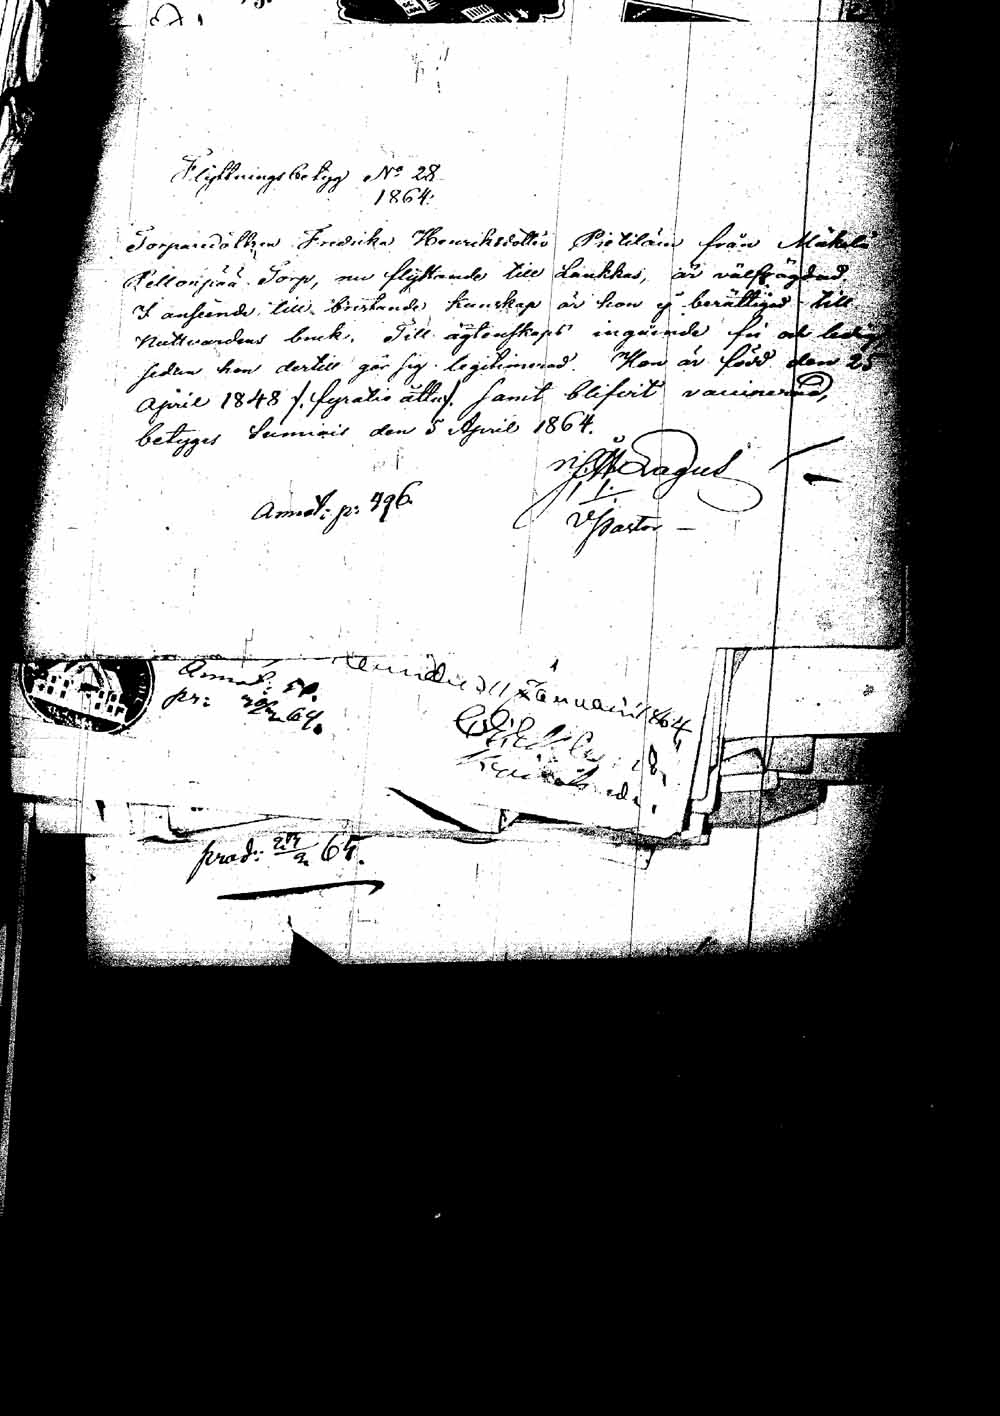 Flyttningsbetyg No 28
1864.
Torparedottren Fredrika Henriksdotter Pietiläin från Mäkelä
Peltonpää Torp, nu flyttande till Laukkas, är välfrägdad
I anseende till bristande kunskap är hon ej berättigad till
Nattvardens bruk. Till ägtenskaps ingående fri och ledig
sedan hon dertill gör sig legitimerad. Hon är född den 25
April 1848 /. fyratio åtta /. samt blifvit vaccinerad,
betygas Sumiais den 5 April 1864.
Lagus
V Pastor
Annot: p: 496.
Annot:
pr: 64.
d 11 Januari 1864.
prod: 64.